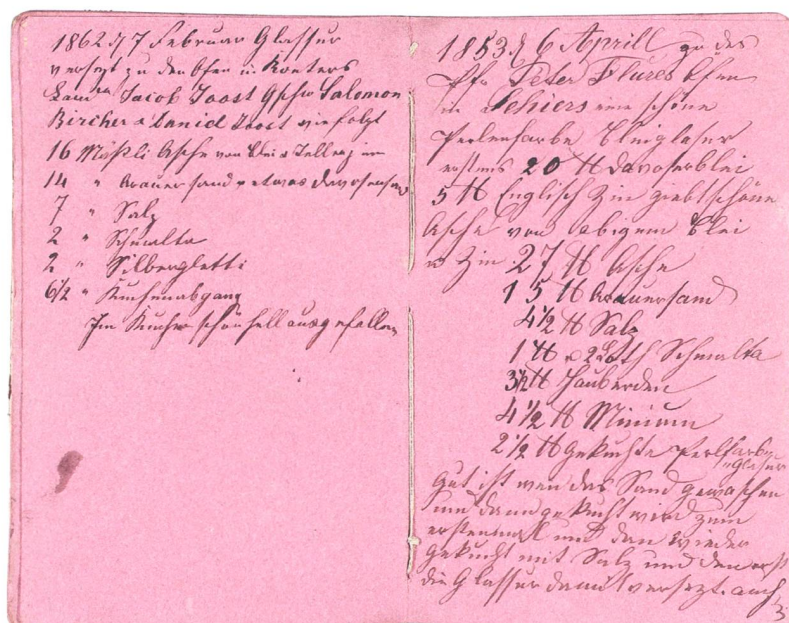 1862 d 7 Februar Glassur
versezt zu den Ofen in
Jacob Joost Salomon
Bircher & Daniel Joost wie folgt
16 Mäßli Asche von Blei & Tellerzin
14 " Arauersand & etwas davosersand
7 " Salz
2 " Schmalta
2 " Silbergletti
6 1/2 " Kuchenabgang
Im Kuchen schön hell ausgefallen
1853 d 6 Aprill zu des
Peter Flüres Ofen
in Schiers eine schöne
Perlenfarbe Bleiglasur
erstens 20 ℔ Davoserblei
5 ℔ Englisch Zin giebt schöne
Asche von obigem Blei
u Zin 27 ℔ Asche
15 ℔ Arauersand
4 1/2 ℔ Salz
1 ℔ & 2 Loth Schmalta
3 1/2 ℔
4 1/2 ℔ Minium
2 1/2 ℔ gekuchte perlfarb
glasur
Gut ist wen das Sand gewaschen
und dann gekucht wird zum
erstenmal und dan wieder
gekucht mit Salz und dan erst
die Glassur damit versezt. auch
3